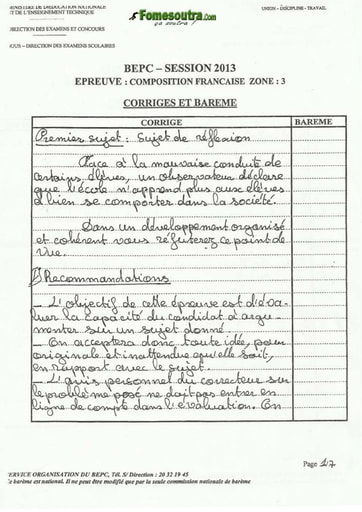 MINISTERE DE L'EDUCATION NATIONALE
ET DE L'ENSEIGNEMENT TECHNIQUE
Fomesoutra.com
ça soutra !
UNION – DISCIPLINE - TRAVAIL
DIRECTION DES EXAMENS ET CONCOURS
DIRECTION DES EXAMENS SCOLAIRES
BEPC – SESSION 2013
EPREUVE : COMPOSITION FRANCAISE ZONE : 3
CORRIGES ET BAREME
CORRIGE
BAREME
Premier sujet : Sujet de réflexion
Face à la mauvaise conduite de
certains élèves, un observateur déclare
que l'école n'apprend plus aux élèves
à bien se comporter dans la société.
Dans un développement organisé
et cohérent vous réfuterez ce point de
vue.
I) Recommandations
_ L'objectif de cette épreuve est d'éva-
luer la capacité du candidat à argu-
menter sur un sujet donné.
_ On acceptera donc toute idée, pour
originale et inattendue qu'elle soit,
en rapport avec le sujet.
_ L'avis personnel du correcteur sur
le problème posé ne doit pas entrer en
ligne de compte dans l'évaluation. On
Page 1/7
SERVICE ORGANISATION DU BEPC, Tél. S/ Direction : 20 32 19 45
Ce barème est national. Il ne peut être modifié que par la seule commission nationale de barème